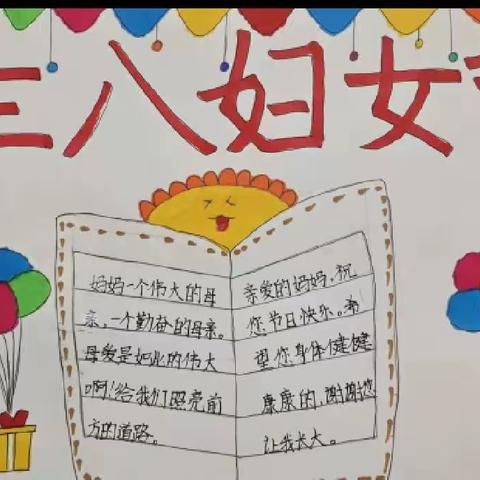 三八妇女节
妈妈一个伟大的母
亲,一个勤奋的母亲。
母爱是如此的伟大
啊!给我们照亮前
方的道路。
亲爱的妈妈,祝
您节日快乐。希
望您身体健健
康康的,谢谢您
让我长大。